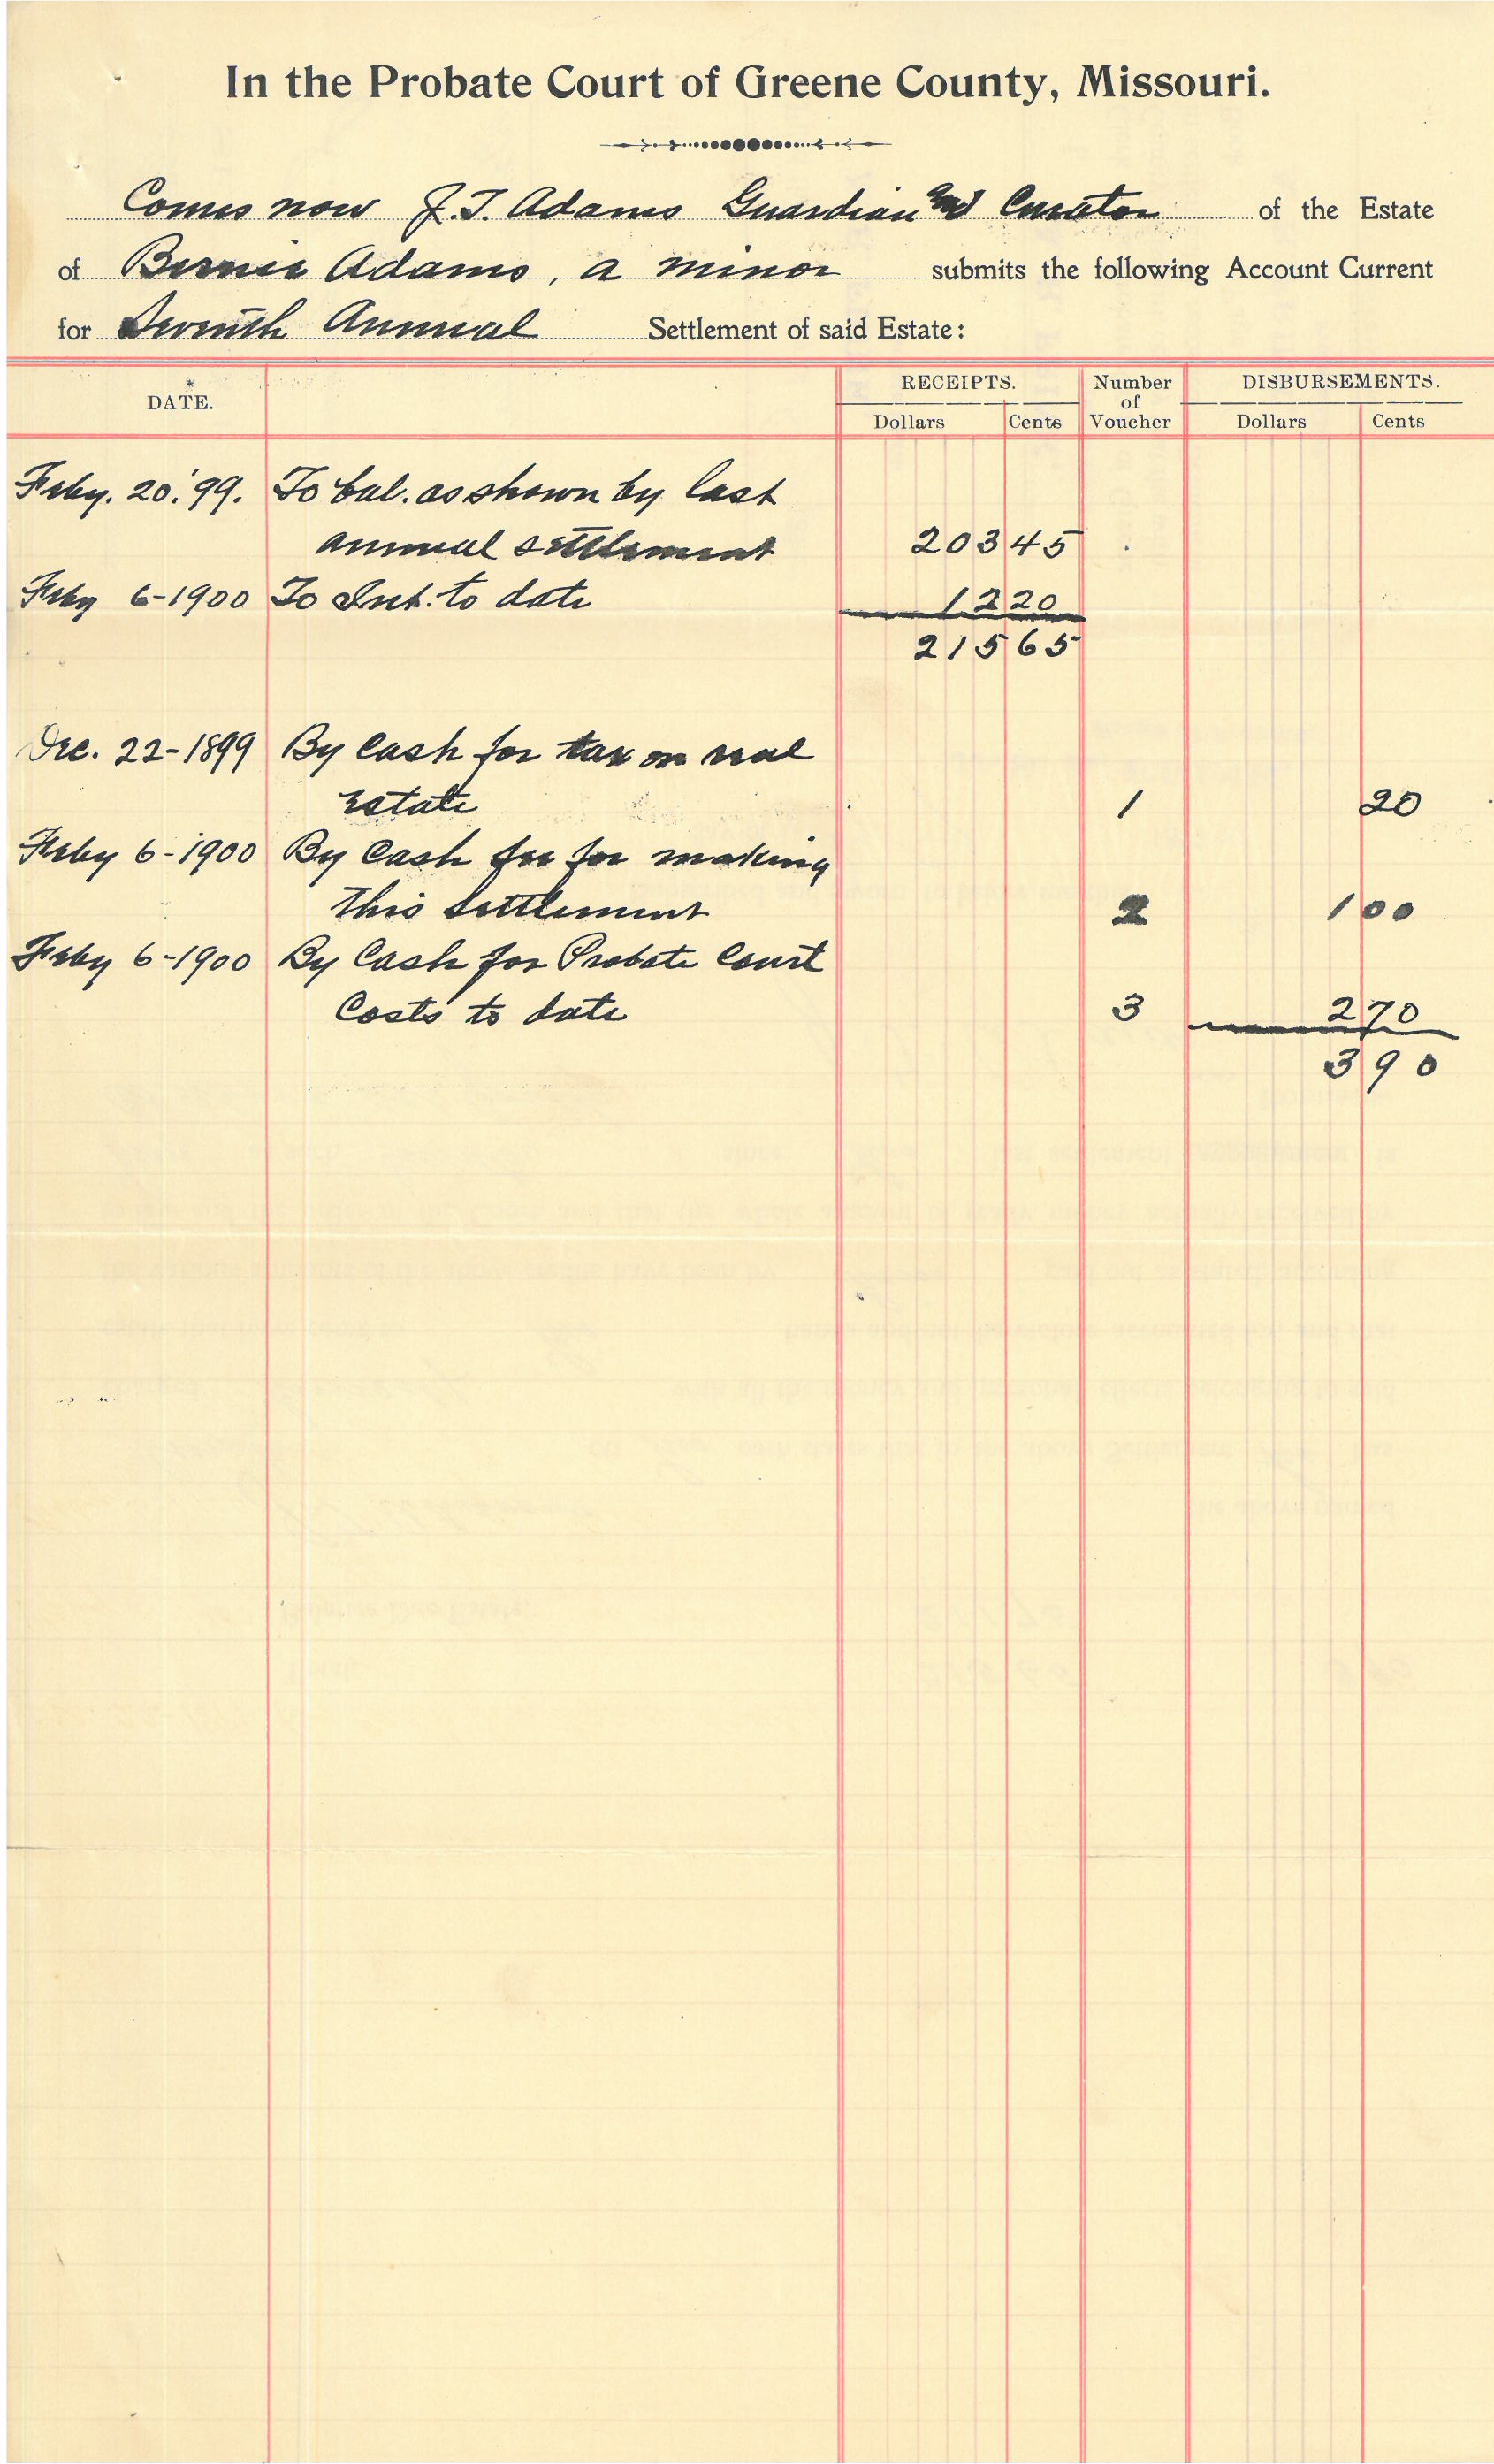 In the Probate Court of Greene County, Missouri.
Comes now J. T. Adams Guardian and Curator of the Estate
of Bernie Adams, a minor submits the following Account Current
for Seventh Annual Settlement of said Estate:
DATE. RECEIPTS. Number of Voucher DISBURSEMENTS.
Dollars Cents Dollars Cents
Feby. 20.' 99. To bal. as shown by last
annual settlement 203 45
Feby 6-1900 To Int. to date 12 20
215 65
Dec. 22-1899 By Cash for tax on real
estate 1 20
Feby 6-1900 By Cash fee for making
this settlement 2 1 00
Feby 6-1900 By Cash for Probate Court
Costs to date 3 2 70
3 90